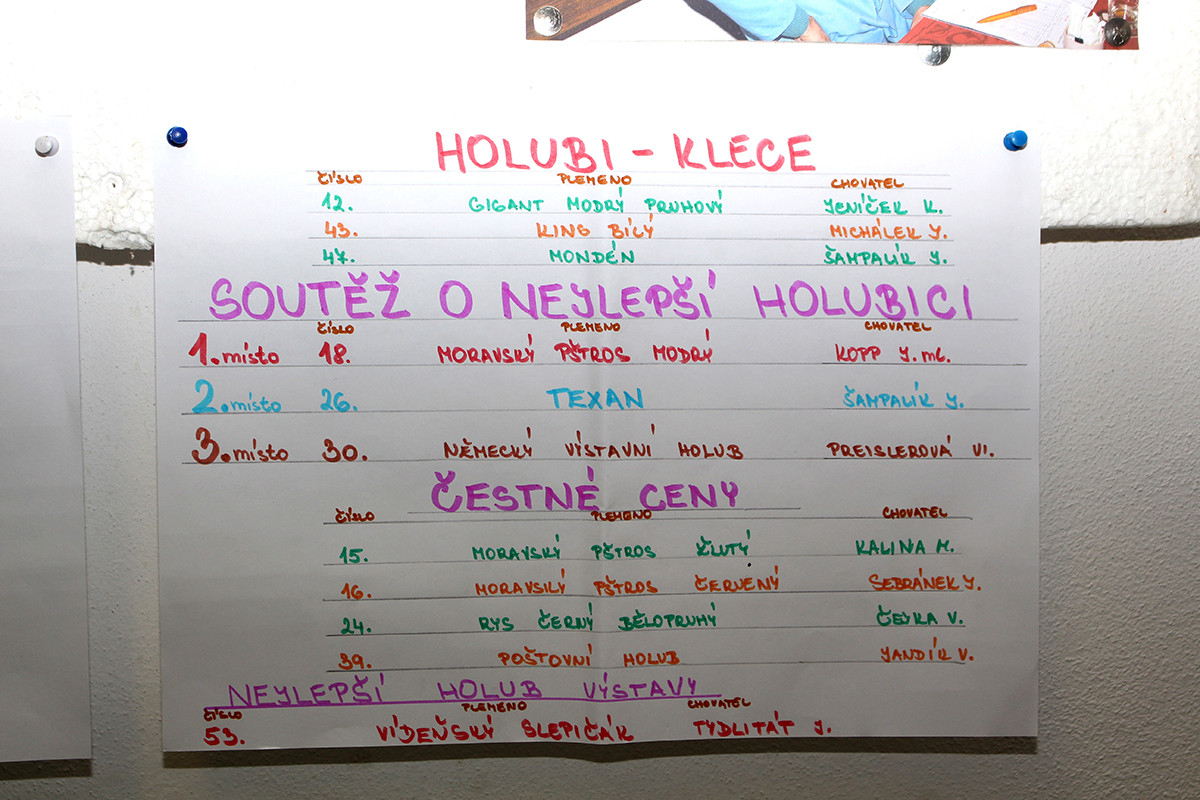 HOLUBI - KLECE
ČÍSLO PLEMENO CHOVATEL
12. GIGANT MODRÝ PRUHOVÝ JENÍČEK K.
43. KING BÍLÝ MICHÁLEK J.
47. MONDÉN ŠAMPALÍK J.
SOUTĚŽ O NEJLEPŠÍ HOLUBICI
ČÍSLO PLEMENO CHOVATEL
1. místo 18. MORAVSKÝ PŠTROS MODRÝ KOPP J. ml.
2. místo 26. TEXAN ŠAMPALÍK J.
3. místo 30. NĚMECKÝ VÝSTAVNÍ HOLUB PREISLEROVÁ VI.
ČESTNÉ CENY
ČÍSLO PLEMENO CHOVATEL
15. MORAVSKÝ PŠTROS ŽLUTÝ KALINA M.
16. MORAVSKÝ PŠTROS ČERVENÝ SEBRÁNEK J.
24. RYS ČERNÝ BĚLOPRUHÝ ČEJKA V.
39. POŠTOVNÍ HOLUB JANDÍK V.
NEJLEPŠÍ HOLUB VÝSTAVY
ČÍSLO PLEMENO CHOVATEL
53. VÍDEŇSKÝ SLEPIČÁK TYDLITÁT J.